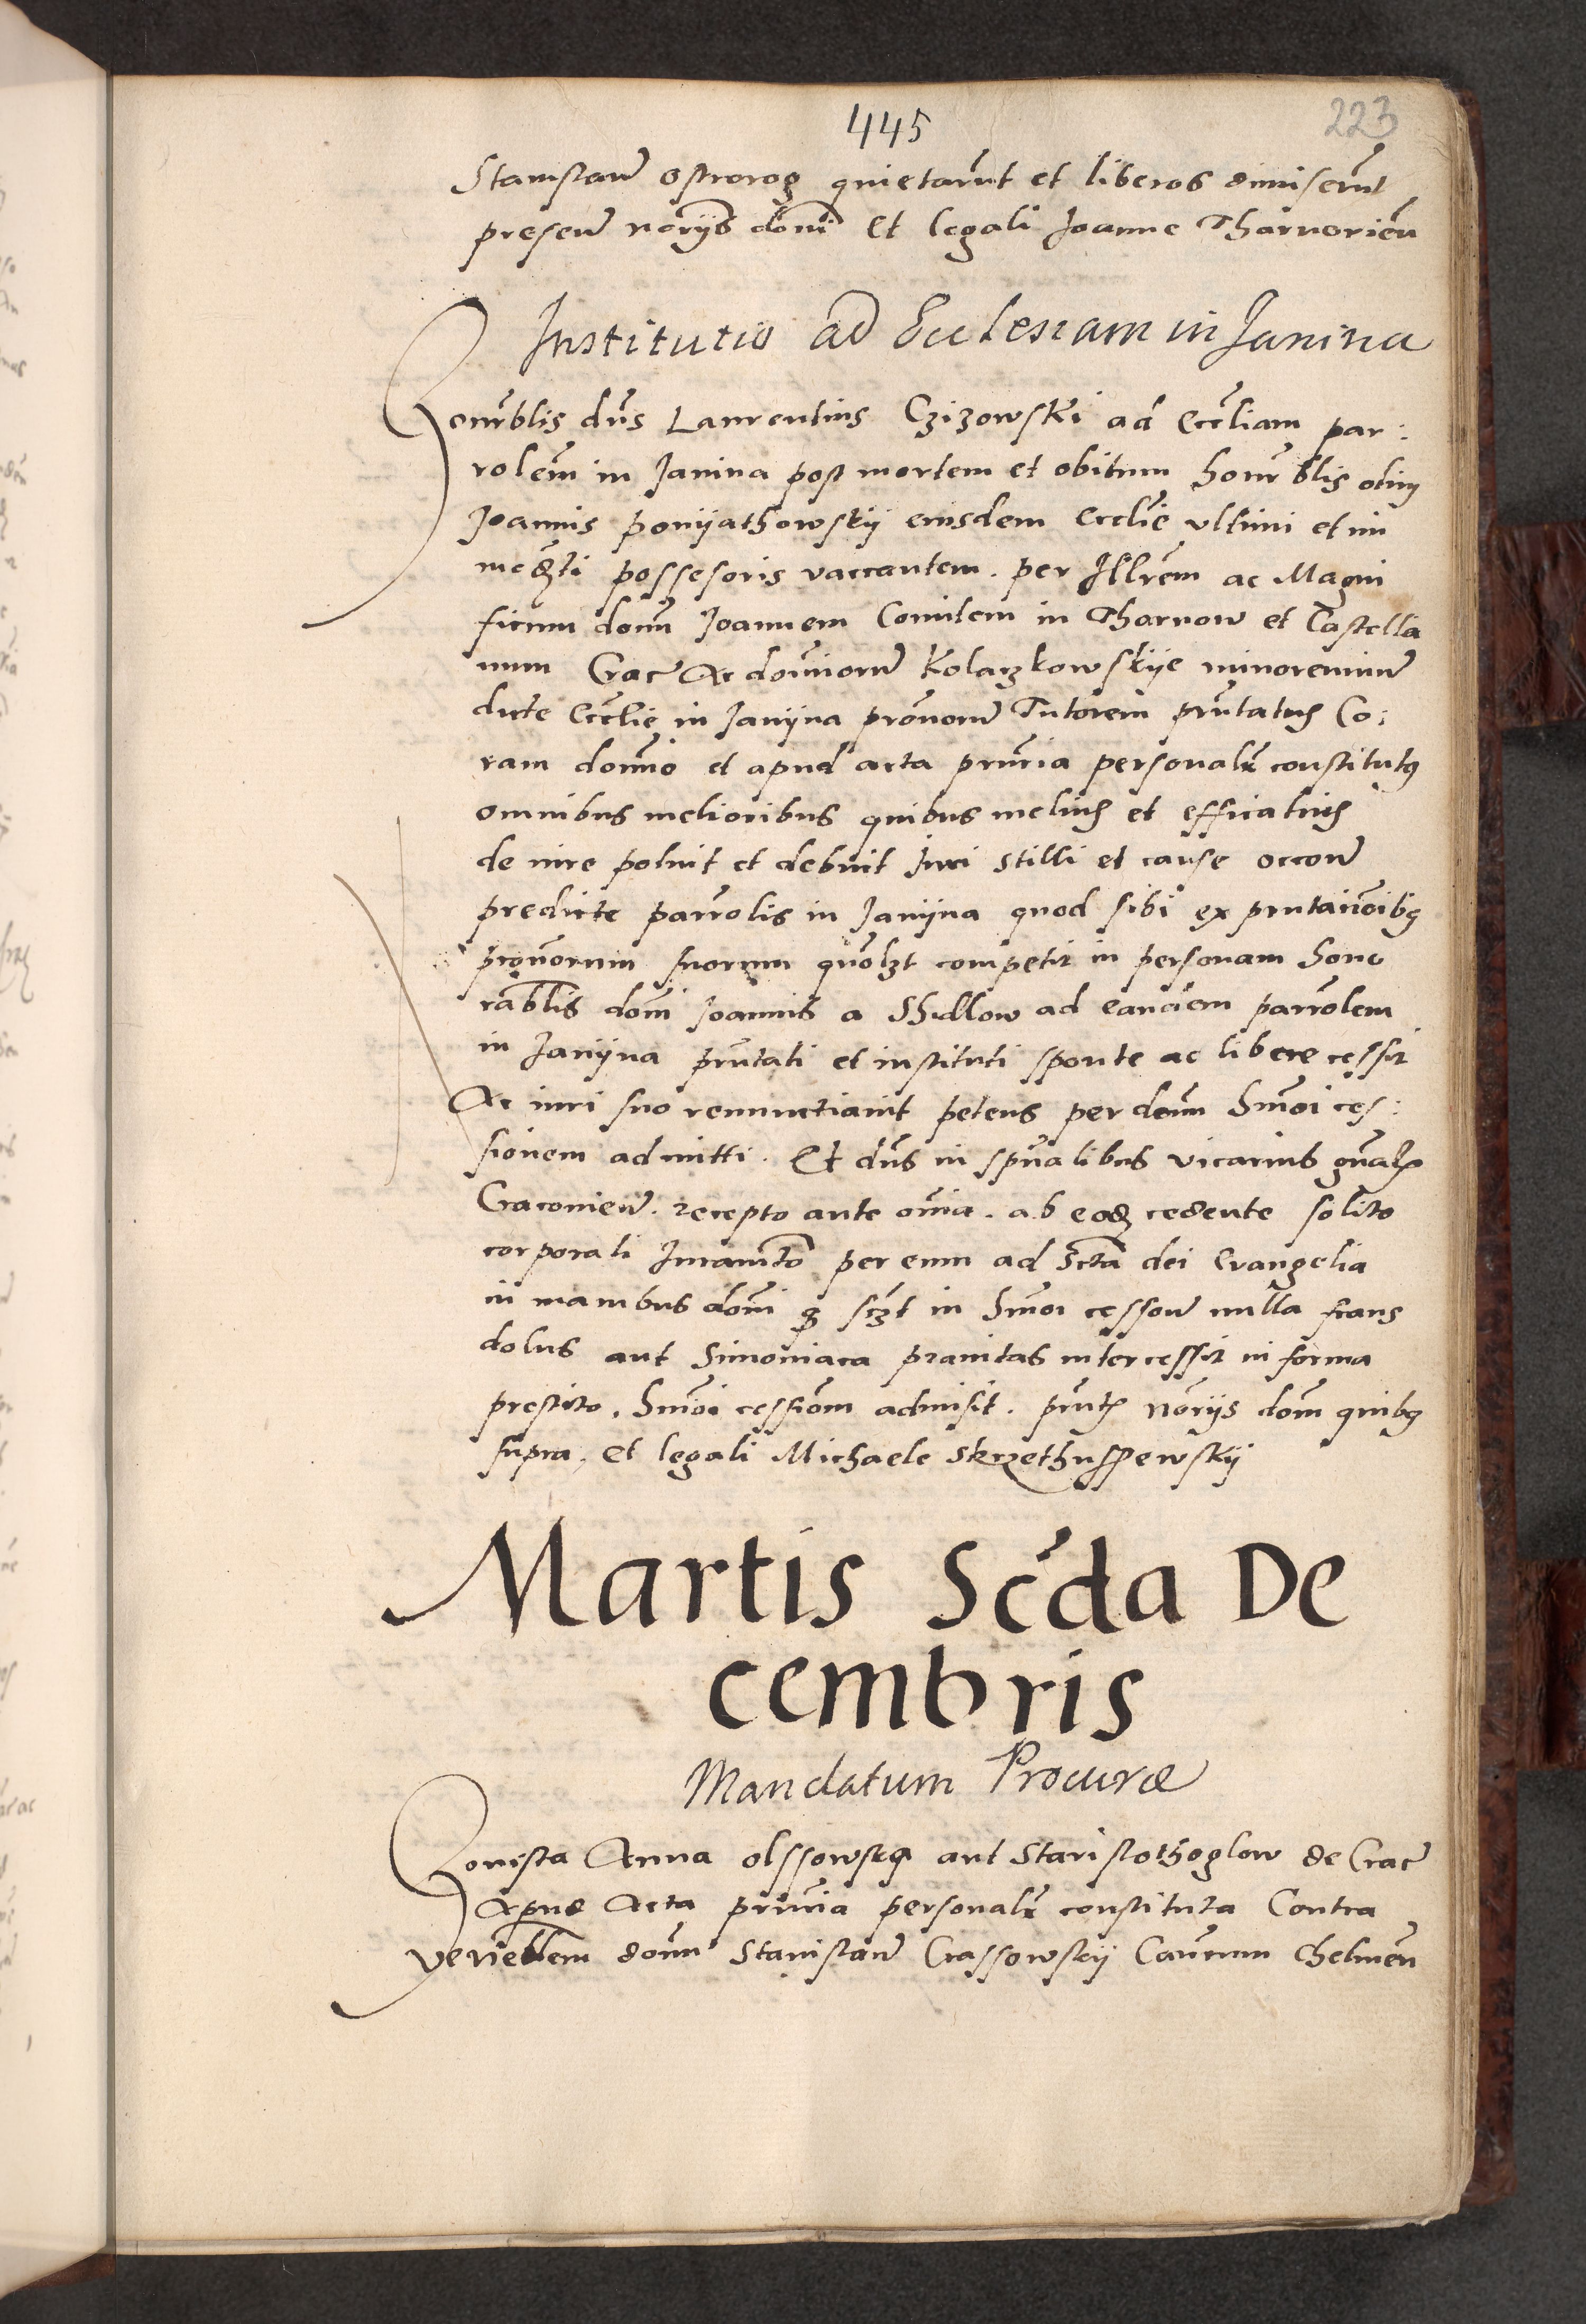 445
223
Stanislaum Ostrorog quietarūt et liberos dimiserūt
presen̄ norijs dom̄ Et legali Joanne Tharnorien̄
Institutio ad Ecclesiam in Janina
Honorblis dn̄s Laurentius Czizowski ad Eccliam par:
rolem̄ in Janina post mortem et obitum honorblis olim
Joannis ponijathowskij eiusdem ecclie vltimi et im
mediati possesoris vaccantem. per Illrem ac Magni
ficum dom̄ Joannem Comitem in Tharnow et Castella
num Crac̄ Ac dominorum Kolaczkowskije minorennium
dicte Ecclie in Janijna pronorum Tutorem pn̄tatus Co:
ram domino et apud acta pn̄cia personalr constitutus
omnibus melioribus quibus melius et efficatius
de iure potuit et debuit Juri stilli et cause occon̄
predicte parrolis in Janijna quod sibi ex pn̄tacionibus
pronorum suorum quolzt competit in personam hono
rablis dom̄ Joannis a Shidlow ad eandem parrolem
in Janijna pn̄tati et instituti sponte ac libere cessit
Ac iuri suo renunctiauit petens per dom̄ hm̄oi ces:
sionem admitti. Et dn̄s in spualibus vicarius gn̄alis
Cracouien̄. recepto ante om̄ia. ab eodem cedente solito
corporali Juramto per eum ad scta dei Evangelia
in manibus dom̄i q̄ sczt in hm̄oi cession̄ nulla fraus
dolus aut Simoniaca prauitas intercessit in forma
prestito. hm̄oi cessiom admisit. pn̄tibus norijs dom̄ quibus
supra, Et legali Michaele Skrzethussewskij
Martis Sc̄da De
cembris
Mandatum Procuræ
Honista Anna Olssowska aut Stari de Crac̄
Apud Acta pn̄cia personalr constituta Contra
venerblem dom̄ Stanislaum Crassowskij Can̄cum Chelmen̄